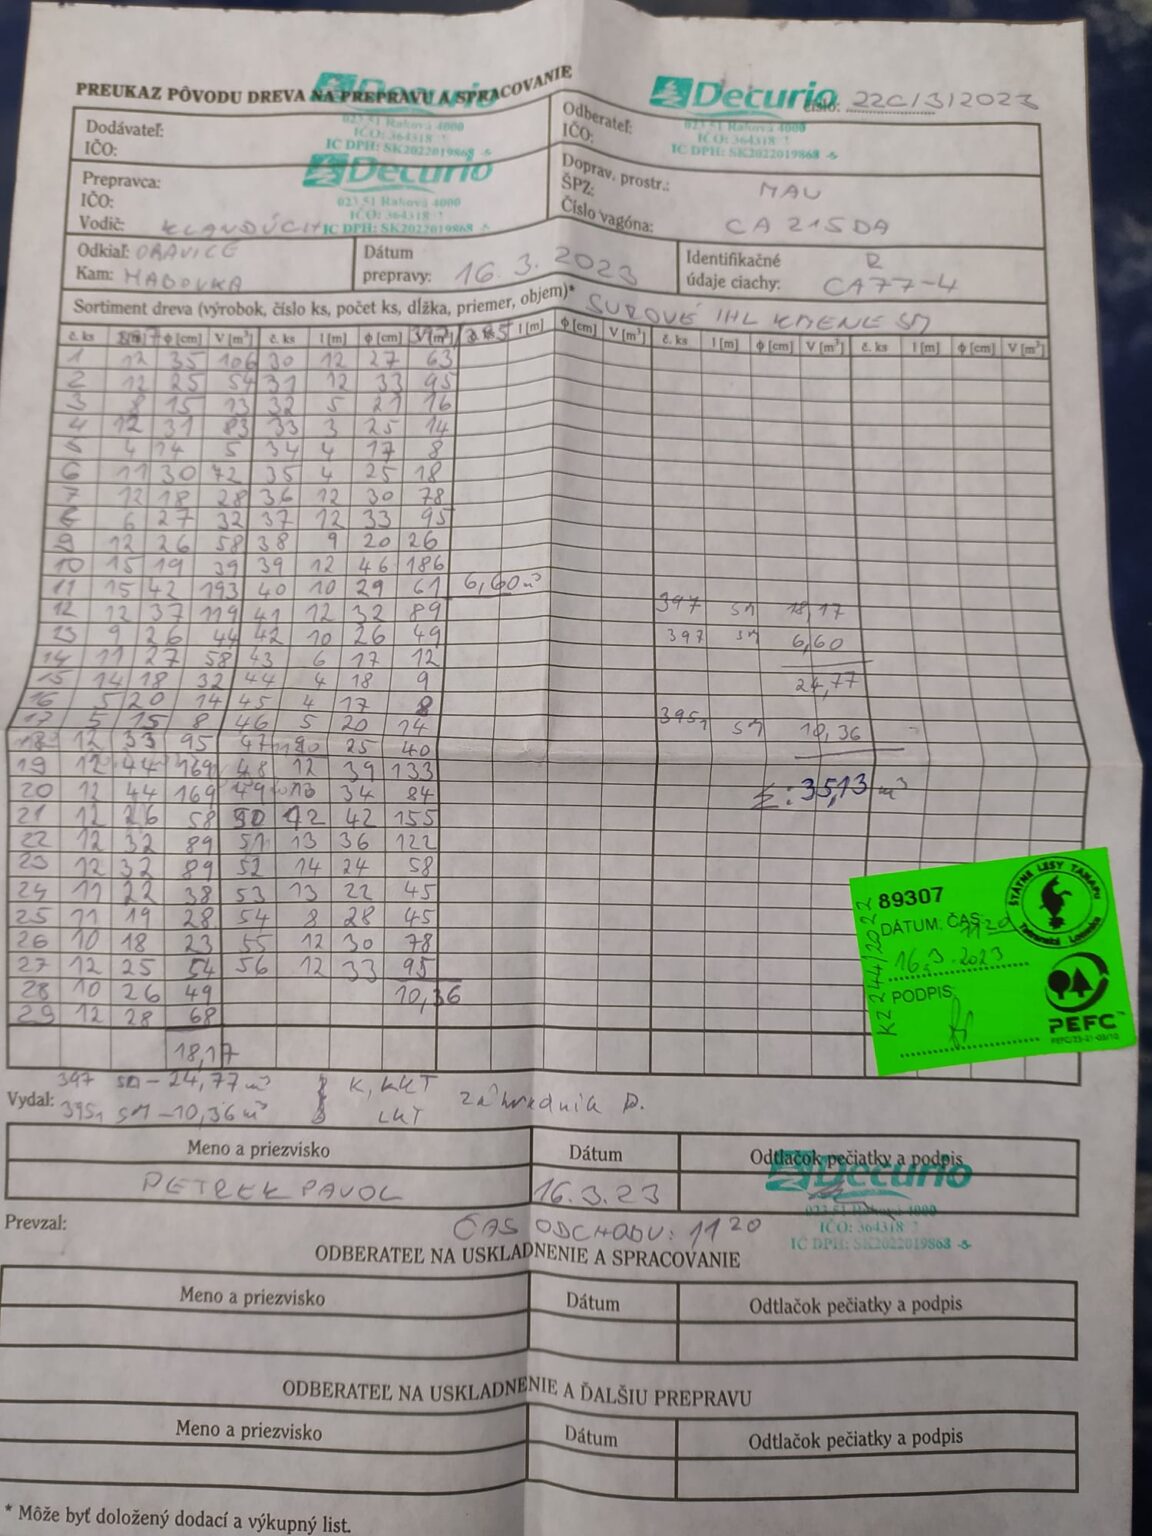 PREUKAZ PÔVODU DREVA NA PREPRAVU A SPRACOVANIE
Decurio
Decurio
číslo: 22C/3/2023
Dodávateľ:
IČO:
023 51 Raková 4000
IČO: 364318
IC DPH: SK2022019868
Odberateľ:
IČO:
023 51 Raková 4000
IČO: 364318
IC DPH: SK2022019868
Prepravca:
IČO:
Vodič:
Decurio
023 51 Raková 4000
IČO: 364318
IC DPH: SK2022019868
Doprav. prostr.: MAU
ŠPZ:
Číslo vagóna: CA 215DA
Odkiaľ: ORAVICE
Kam: HABOVKA
Dátum
prepravy: 16. 3. 2023
Identifikačné R
údaje ciachy: CA77-4
Sortiment dreva (výrobok, číslo ks, počet ks, dĺžka, priemer, objem)* SUROVÉ IHL KMENE SM
č. ks ϕ [cm] V [m³] č. ks l [m] ϕ [cm] l [m] ϕ [cm] V [m³] č. ks l [m] ϕ [cm] V [m³] č. ks l [m] ϕ [cm] V [m³]
1 12 35 106 30 12 27 63
2 12 25 54 31 12 33 95
3 8 15 13 32 5 21 16
4 12 31 83 33 3 25 14
5 4 14 5 34 4 17 8
6 11 30 72 35 4 25 18
7 12 18 28 36 12 30 78
8 6 27 32 37 12 33 95
9 12 26 58 38 9 20 26
10 15 19 39 39 12 46 186
11 15 42 193 40 10 29 61 6,60 m³
12 12 37 119 41 12 32 89 397 SM 18,17
13 9 26 44 42 10 26 49 397 SM 6,60
14 11 27 58 43 6 17 12
15 14 18 32 44 4 18 9 24,77
16 5 20 14 45 4 17 8
17 5 15 8 46 5 20 14 3951 SM 10,36
18 12 33 95 47 25 40
19 12 44 169 48 12 39 133
20 12 44 169 49 34 84 Σ: 35,13 m³
21 12 26 58 50 12 42 155
22 12 32 89 51 13 36 122
23 12 32 89 52 14 24 58
24 11 22 38 53 13 22 45
25 11 19 28 54 8 28 45
26 10 18 23 55 12 30 78
27 12 25 54 56 12 33 95
28 10 26 49 10,36
29 12 28 68
18,17
89307
DÁTUM, ČAS: 11 20
16.3.2023
PODPIS:
KZ 244/2022
ŠTÁTNE LESY TANAPU
Tatranská Lomnica
PEFC
397 SM - 24,77 m³ K, LKT
Vydal: 3951 SM - 10,36 m³ LKT
záhradník P.
Meno a priezvisko Dátum Odtlačok pečiatky a podpis
PETREK PAVOL 16.3.23
Decurio
023 51 Raková 4000
IČO: 364318
IC DPH: SK2022019868
Prevzal: ČAS ODCHODU: 11 20
ODBERATEĽ NA USKLADNENIE A SPRACOVANIE
Meno a priezvisko Dátum Odtlačok pečiatky a podpis
ODBERATEĽ NA USKLADNENIE A ĎALŠIU PREPRAVU
Meno a priezvisko Dátum Odtlačok pečiatky a podpis
* Môže byť doložený dodací a výkupný list.